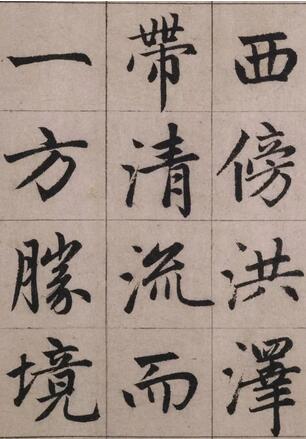 西傍洪澤
帶清流而
一方勝境